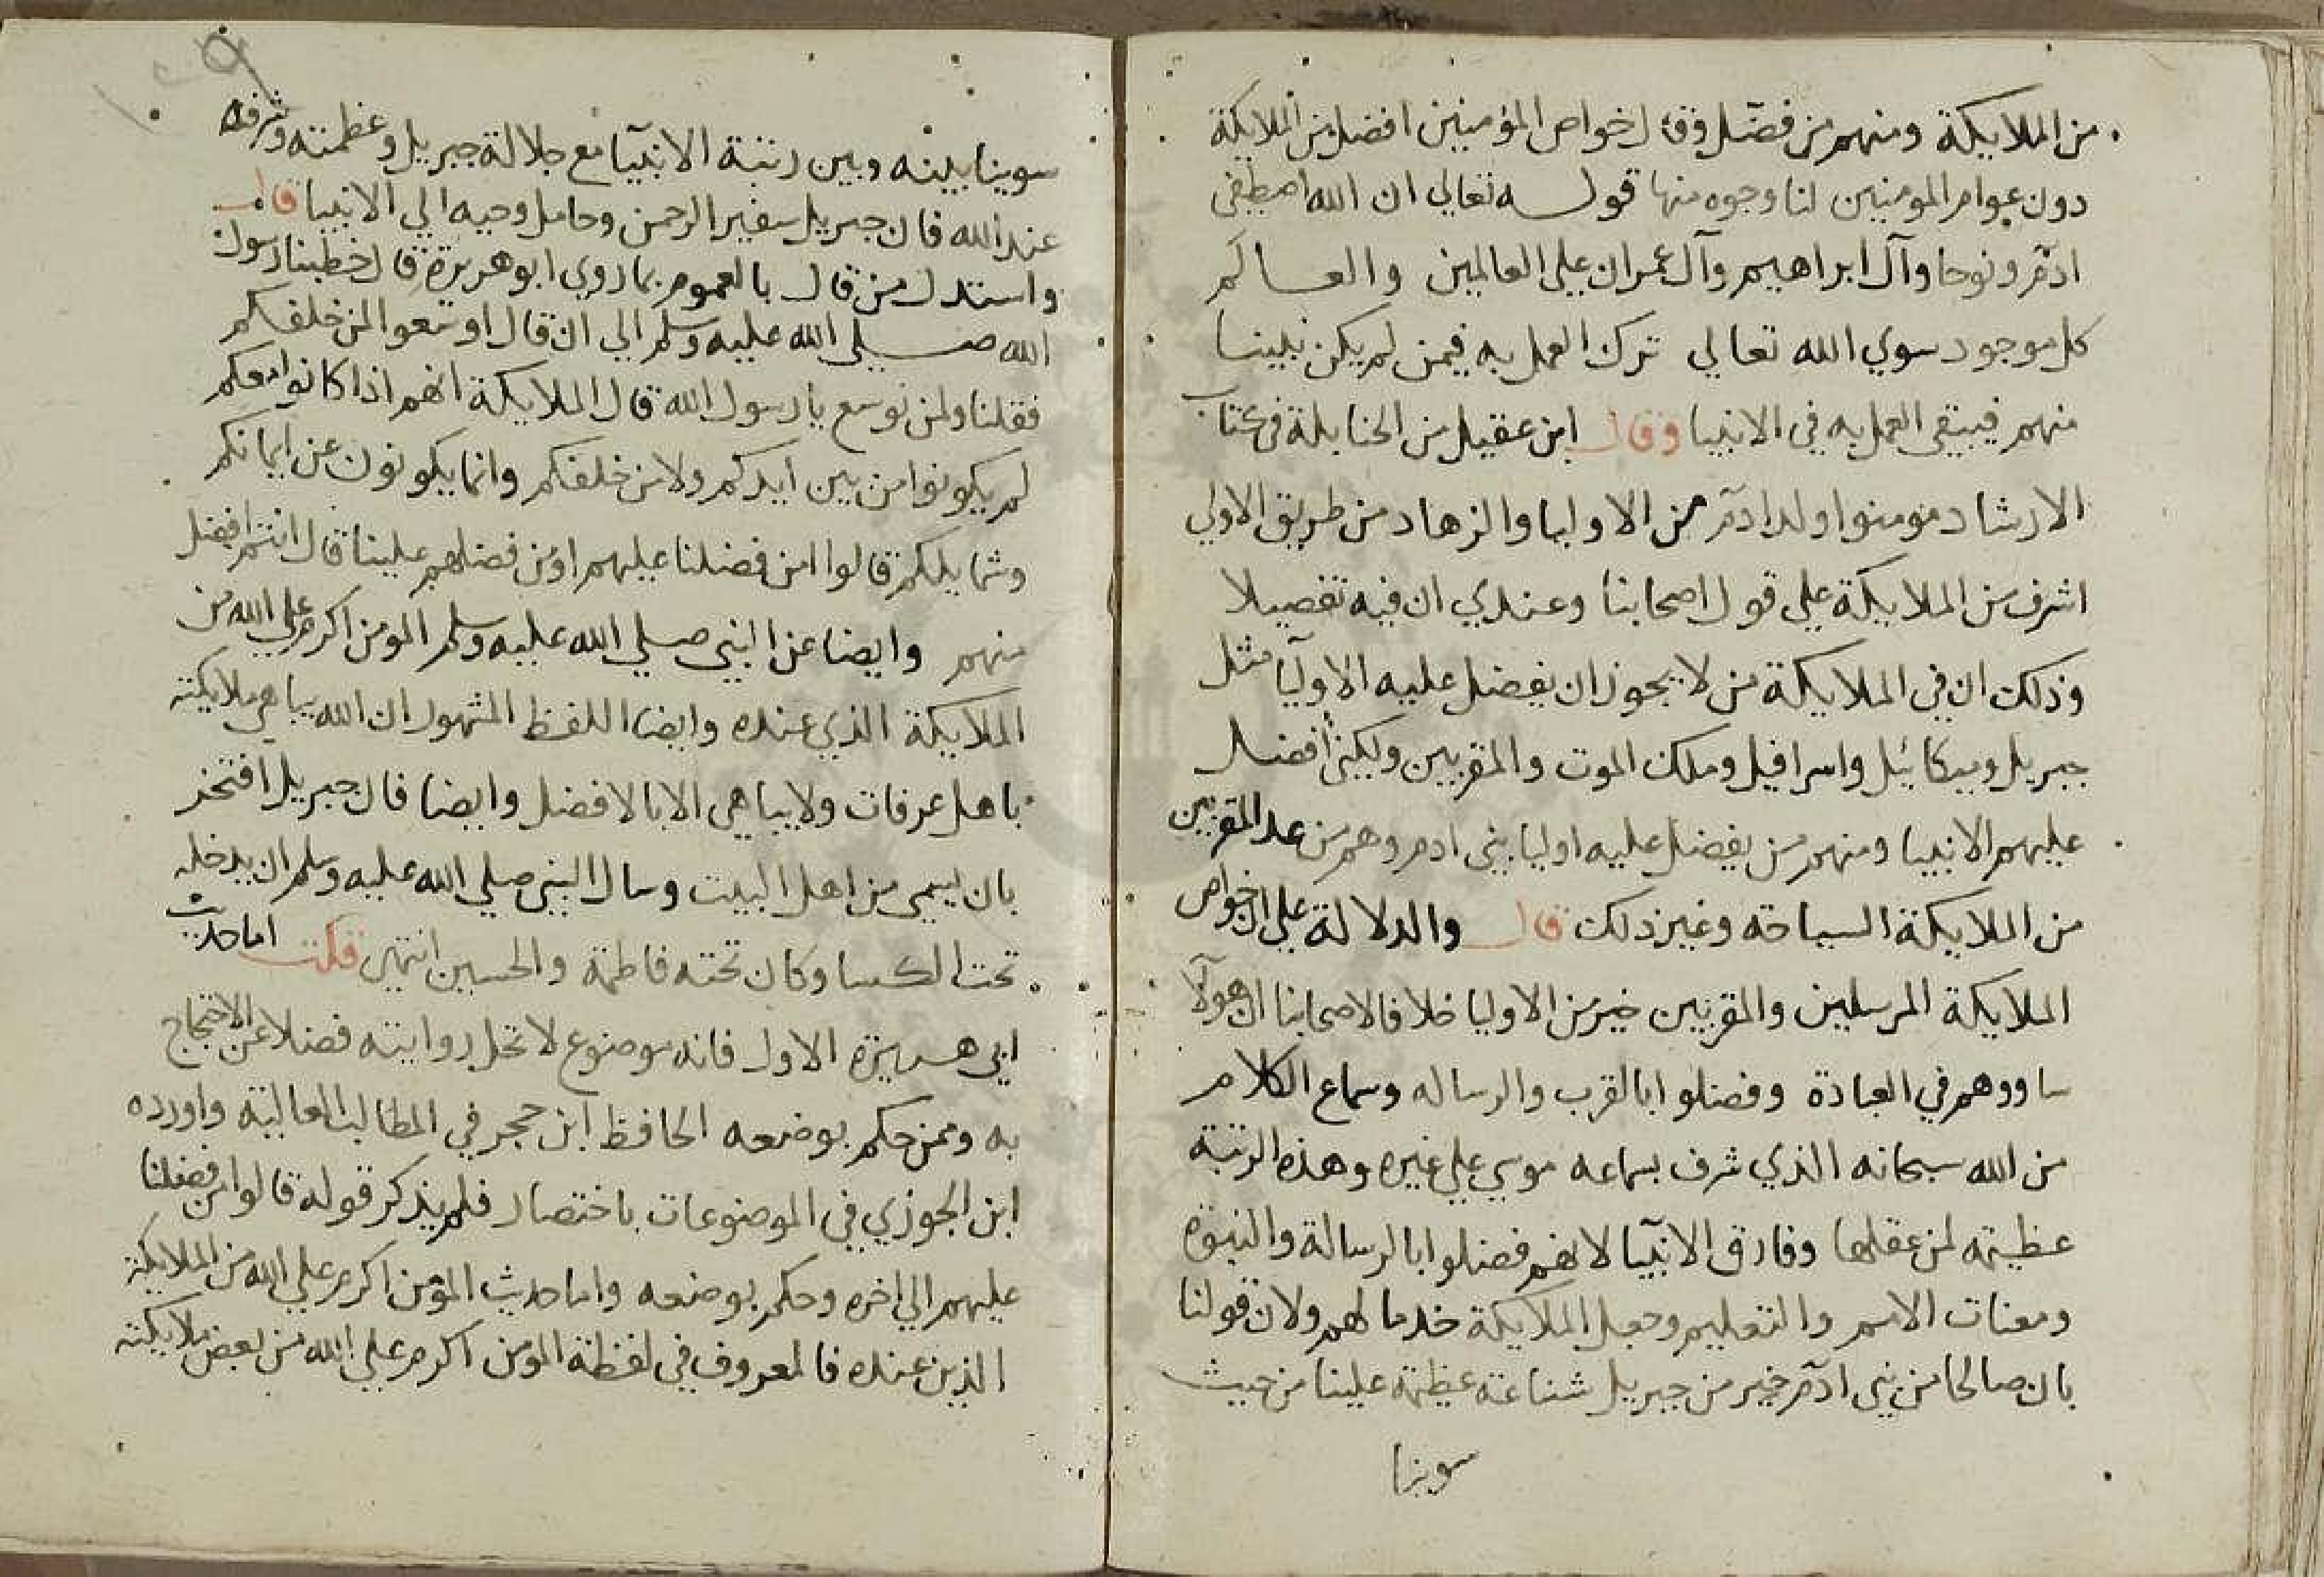 من الملايكة ومنهم من فضل وقال خواص المؤمنين افضل من الملايكة
دون عوام المومنين لنا وجوه منها قوله تعالي ان الله اصطفى
ادم ونوحا وآل ابراهيم وآل عمران علي العالمين والعالم
كل موجود سوي الله تعالي ترك العمل به فيمن لم يكن نبينا
منهم فيبقى العمل به في الانبيا وقال ابن عقيل من الحنابلة في كتاب
الارشاد مومنوا ولد ادم من الاوليا والزهاد من طريق الاولي
اشرف من الملايكة علي قول اصحابنا وعندي ان فيه تفصيلا
وذلك ان في الملايكة من لا يجوز ان يفضل عليه الاوليآ مثل
جبريل وميكائيل واسرافيل وملك الموت والمقربين ولكني أفضل
عليهم الانبيا ومنهم من يفضل عليه اوليا بني ادم وهم من عدا المقربين
من الملايكة السياحه وغير ذلك قال والدلالة علي ان خواص
الملايكة المرسلين والمقربين خير من الاوليا خلافا لاصحابنا ان هولآ
ساووهم في العبادة وفضلوا بالقرب والرساله وسماع الكلام
من الله سبحانه الذي شرف بسماعه موسي علي غيره وهذه الرتبة
عظيمة لمن عقلها وفارق الانبيآ لانهم فضلوا بالرسالة والنبوة
ومعنات الامم والتعليم وجعل الملايكة خدما لهم ولان قولنا
بان صالحا من بني ادم خير من جبريل شناعة عظيمة علينا من حيث
سوينا
سوينا بينه وبين رتبة الانبيآ مع جلالة جبريل وعظمته وشرفه
عند الله فان جبريل سفير الرحمن وحامل وحيه الي الانبيا قال
واستدل من قال بالعموم بما روي ابو هريرة قال خطبنا رسول
الله صلي الله عليه وسلم الي ان قال اوسعوا لمن خلفكم
فقلنا ولمن نوسع يا رسول الله قال الملايكة انهم اذا كانوا معكم
لم يكونوا من بين ايديكم ولا من خلفكم وانما يكونون عن ايمانكم
وشمايلكم قالوا امن فضلنا عليهم او من فضلهم علينا قال انتم افضل
منهم وايضا عن النبي صلي الله عليه وسلم المومن اكرم علي الله من
الملايكة الذي عنده وايضا اللفظ المشهور ان الله يباهي ملايكته
باهل عرفات ولا يباهي الا بالافضل وايضا فان جبريل افتخر
بان يسمي من اهل البيت وسال النبي صلي الله عليه وسلم ان يدخله
تحت الكسا وكان تحته فاطمة والحسين انتهى قلت اما حديث
ابي هريرة الاول فانه موضوع لا تحل روايته فضلا عن الاحتجاج
به وممن حكم بوضعه الحافظ ابن حجر في المطالب العالية واورده
ابن الجوزي في الموضوعات باختصار فلم يذكر قوله قالوا من فضلنا
عليهم الي اخره وحكم بوضعه واما حديث المؤمن اكرم علي الله من الملايكة
الذين عنده فالمعروف في لفظة المومن اكرم علي الله من بعض ملايكته